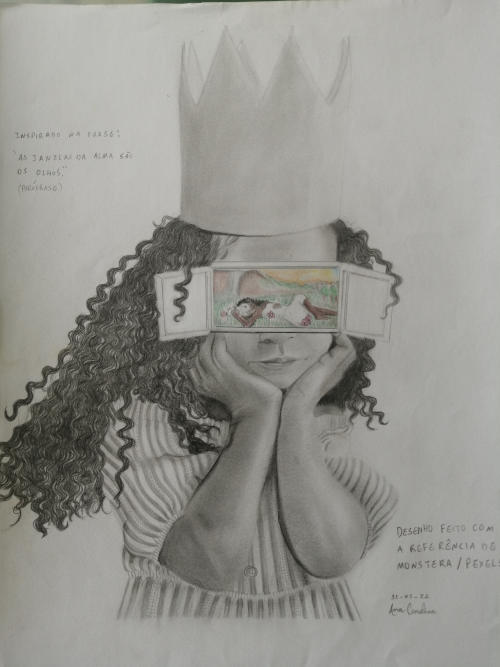 INSPIRADO NA FRASE:
"AS JANELAS DA ALMA SÃO
OS OLHOS."
(PARÁFRASE)
DESENHO FEITO COM
A REFERÊNCIA DE
MONSTERA / PEXELS
Ana